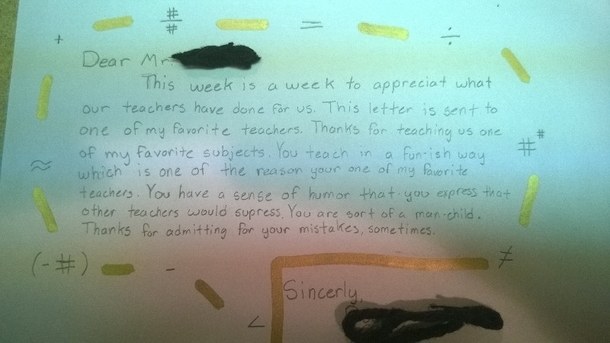 + #/# = ÷
Dear Mr.
This week is a week to appreciat what
our teachers have done for us. This letter is sent to
one of my favorite teachers. Thanks for teaching us one
of my favorite subjects. You teach in a fun-ish way
which is one of the reason your one of my favorite
teachers. You have a sense of humor that you express that
other teachers would supress. You are sort of a man-child.
Thanks for admitting for your mistakes, sometimes.
≈ #^#
(-#) - ≠
Sincerly,
<